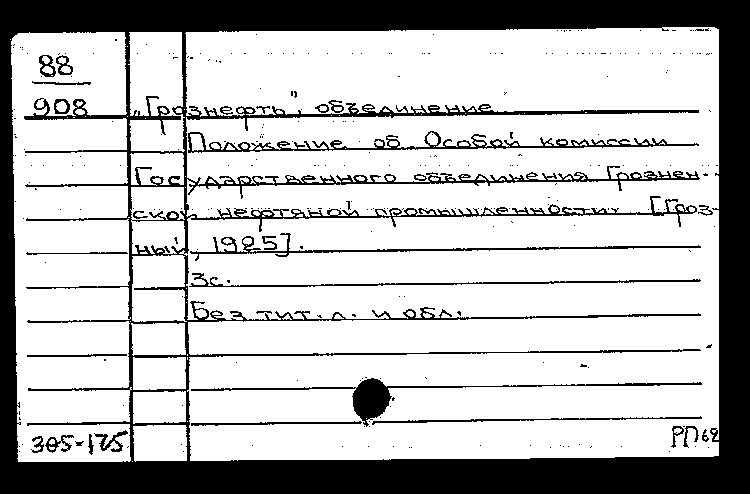 88
908
„Грознефть", объединение
Положение об Особой комиссии
Государственного объединения Грознен-
ской нефтяной промышленности. [Гроз-
ный, 1925].
3с.
Без тит. л. и обл.
305-175
РП 62